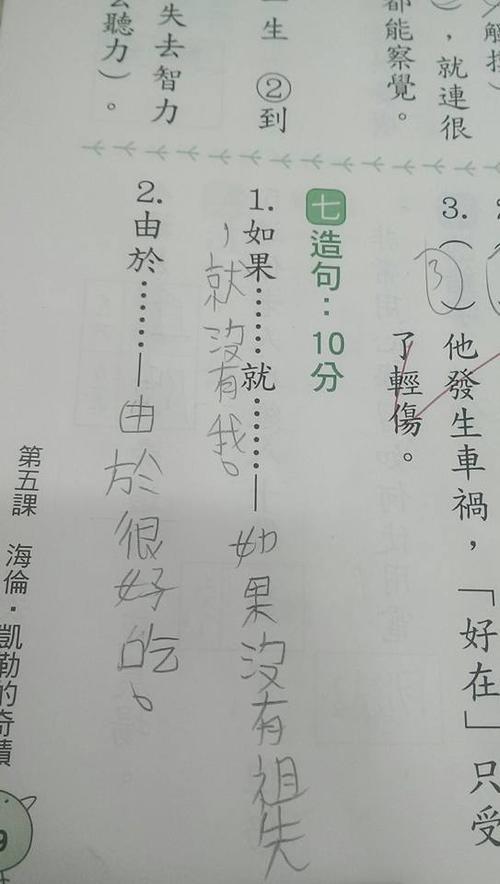 解
），就連很
都能察覺。
一生　②到
失去智力
聽力）。
3.（3）他發生車禍，「好在」只受
了輕傷。
七 造句：10分
1. 如果……就……—如果沒有祖先
，就沒有我。
2. 由於……—由於很好吃。
第五課 海倫·凱勒的奇蹟
9